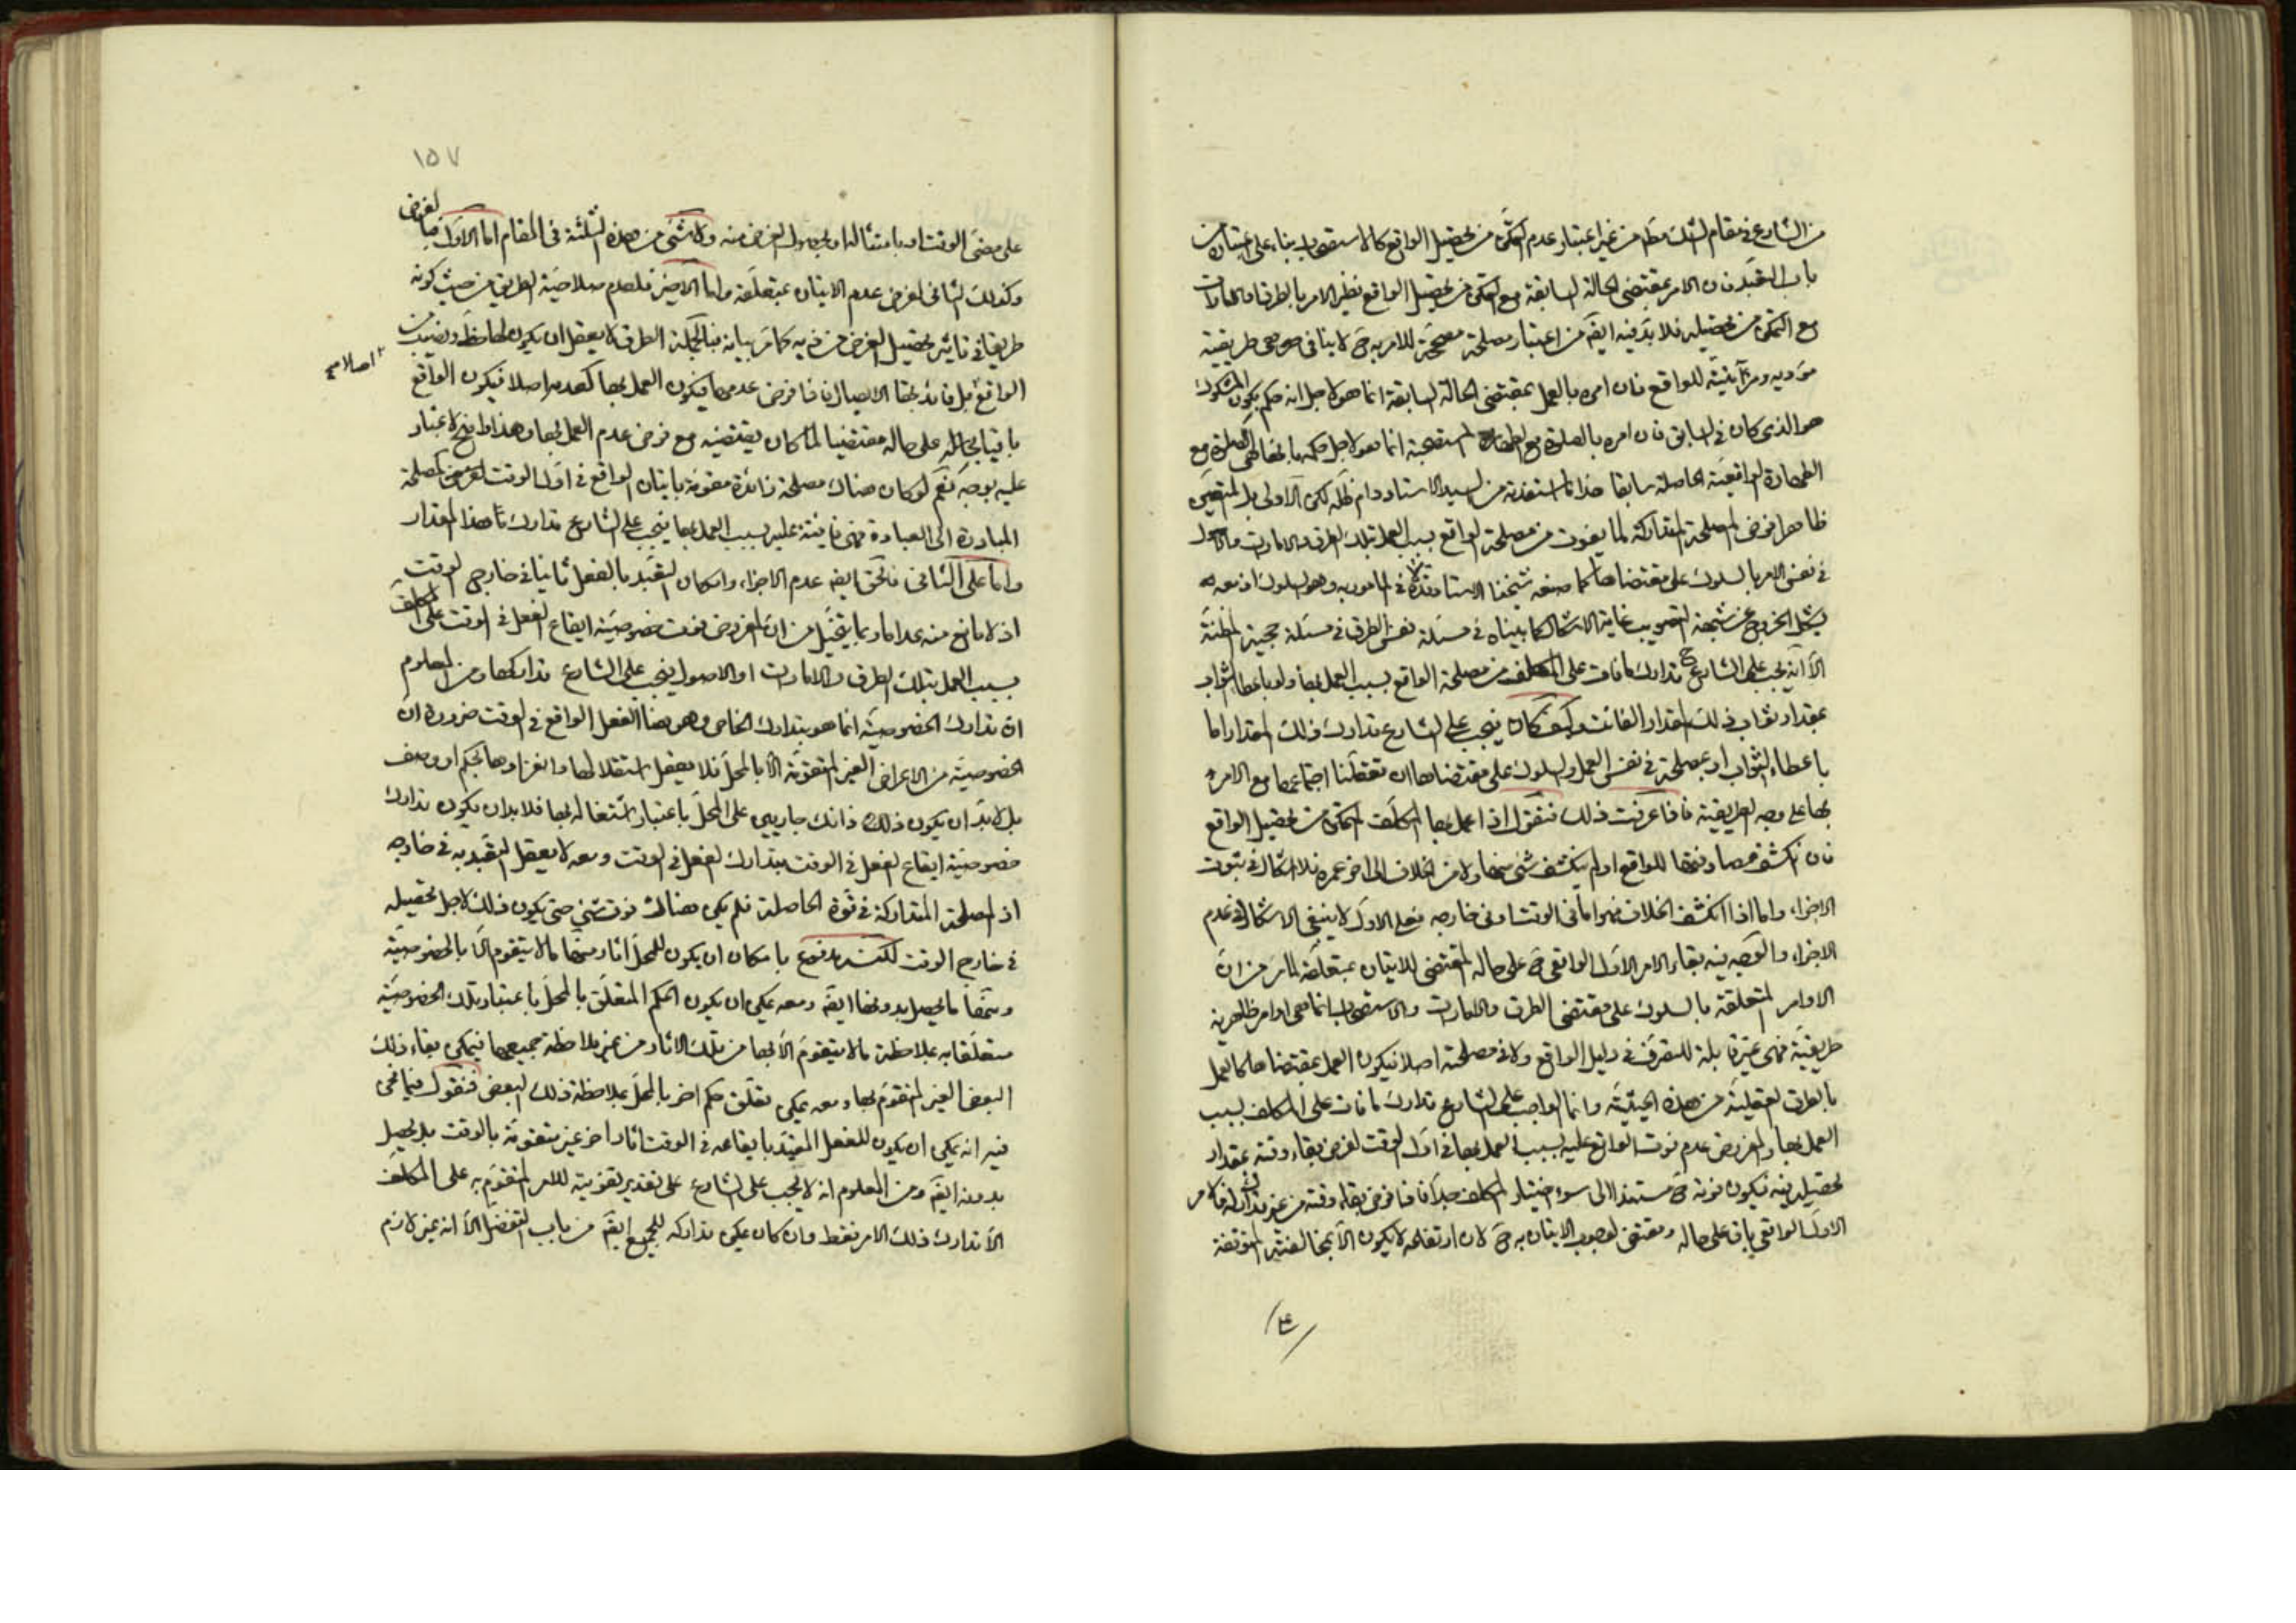 من الشارع في مقام الشك مط من غير اعتبار عدم التمكن من تحصيل الواقع كالاستصحاب بناء على اعتباره من
باب التعبد فان الامر بمقتضى الحالة السابقة مع التمكن من تحصيل الواقع نظير الامر بالطرق والامارات
مع التمكن من تحصيله فلا بد فيه ايضَ من اعتبار مصلحة مصححة للامر به حَ لا ينافى هى طريقية
مؤديه ومرآتيته للواقع فان امره بالعمل بمقتضى الحالة السابقة انما هو لاجل انه حكم بكون المشكوك
هو الذى كان في السابق فان امره بالصلوة مع الطهارة المستصحبة انما هو لاجل حكمه بانها هى الصلوة مع
الطهارة الواقعية الحاصلة سابقا هذا ما استفدته من السيد الاستاد دام ظله لكن الاولى بل المتعين
ظاهرا فرض المصلحة المتداركة لما يفوت من مصلحة الواقع بسبب العمل بتلك الطرق والامارات والاصول
في نفس الامر بالسلوك على مقتضاها كما صنعه شيخنا الاستاد قده لا في المامور به وهو السلوك اذ معه
يشكل الخروج عن شبهة التصويب غاية الاشكال كما بيناه في مسئلة نفس الطرق في مسئلة حجية المظنة
الا انه يجب على الشارع حَ تدارك ما فات على المكلف من مصلحة الواقع بسبب العمل بها ولو باعطاء الثواب
بمقدار ثواب ذلك المقدار الفائت وكيف كان فيجب على الشارع تدارك ذلك المقدار اما
باعطاء الثواب او بمصلحة في نفس العمل والسلوك على مقتضاها ان تعقلنا اجتماعها مع الامر
بها على وجه الطريقية فاذا عرفت ذلك فنقول اذا عمل بها المكلف المتمكن من تحصيل الواقع
فان انكشف مصادفتها للواقع او لم ينكشف شئ منها ولا من الخلاف الى اخر عمره فلا اشكال في ثبوت
الاجزاء واما اذا انكشف الخلاف فهو اما في الوقت او في خارجه فعلى الاول لا ينبغى الاشكال في عدم
الاجزاء والوجه فيه بقاء الامر الاول الواقعى حَ على حاله المقتضى للاتيان بمتعلقه لما مر من ان
الاوامر المتعلقة بالسلوك على مقتضى الطرق والامارات والاستصحاب انما هى اوامر ظاهرية
طريقية فهى غير قابلة للتصرف في دليل الواقع ولا في مصلحته اصلا فيكون العمل بمقتضاها كالعمل
بالطرق العقلية من هذه الحيثية وانما الواجب على الشارع تدارك ما فات على المكلف بسبب
العمل بها والمفروض عدم فوت الواقع عليه بسبب العمل بها في اول الوقت لفرض بقاء وقته بمقدار
تحصيله فيه فيكون فوته حَ مستندا الى سوء اختيار المكلف جدا فاذا فرض بقاء وقته من غير تدارك له فالامر
الاول الواقعى باق على حاله ومقتض لوجوب الاتيان به حَ لان ارتفاعه لا يكون الا بانحاء المتوقفة
١٥٧
على مضى الوقت او بامتثاله او بحصول الغرض منه ولا شئ من هذه الثلثة في المقام اما الاول فبالفرض
وكذلك الثانى لفرض عدم الاتيان بمتعلقه واما الاخير فلعدم صلاحية الطريق من حيث كونه
طريقا في تاثير تحصيل الغرض من ذيه كما مر بيانه فبالجملة الطرق لا يعقل ان يكون لها حظ ونصيب من
الواقع بل فائدتها الايصال فاذا فرض عدمها فيكون العمل بها كعدمه اصلا فيكون الواقع
باقيا بحاله على حاله مقتضيا لما كان يقتضيه مع فرض عدم العمل بها وهذا واضح لا غبار
عليه بوجه نعم لو كان هناك مصلحة زائدة متقومة باتيان الواقع في اول الوقت كمصلحة
المبادرة الى العبادة فهى فائتة عليه بسبب العمل بها فيجب على الشارع تدارك هذا المقدار
واما على الثانى فالحق ايضه عدم الاجزاء وامكان التعبد بالفعل ثانيا في خارج الوقت
اذ لا مانع منه عدا ما ربما يتخيل من ان المفروض فوت خصوصية ايقاع الفعل في الوقت على المكلف
بسبب العمل بتلك الطرق والامارات او الاصول فيجب على الشارع تداركها ومن المعلوم
ان تدارك الخصوصية انما هو بتدارك الخاص وهو هنا الفعل الواقع في الوقت ضرورة ان
الخصوصية من الاعراض الغير المتقومة الا بالمحل فلا يعقل استقلالها وانفرادها بحكم او وصف
بل لا بد ان يكون ذلك جاريين على المحل باعتبار اشتغاله بها فلا بد ان يكون تدارك
خصوصية ايقاع الفعل في الوقت بتدارك الفعل في الوقت ومعه لا يعقل التعبد به في خارجه
اذ المصلحة المتداركة في قوة الحاصلة فلم يكن هناك فوت شئ حتى يكون ذلك لاجل تحصيله
في خارج الوقت لكنه مدفوع بامكان ان يكون للمحل اثار منها ما لا يتقوم الا بالخصوصية
ومنها ما يحصل بدونها ايضَ ومعه يمكن ان يكون الحكم المتعلق بالمحل باعتبار تلك الخصوصية
متعلقا به بملاحظة ما لا يتقوم الا بها من تلك الاثار من غير ملاحظة جميعها فيمكن بقاء ذلك
البعض الغير المتقوم بها ومعه يمكن تعلق حكم اخر بالمحل بملاحظة ذلك البعض فنقول فيما نحن
فيه انه يمكن ان يكون للفعل المقيد بايقاعه في الوقت اثار اخر غير متقومة بالوقت بل يحصل
بدونه ايضَ ومن المعلوم انه لا يجب على الشارع على تقدير تفويته للامر المتقوم به على المكلف
الا تدارك ذلك الامر فقط وان كان يمكن تداركه للجميع ايضَ من باب التفضل الا انه غير لازم